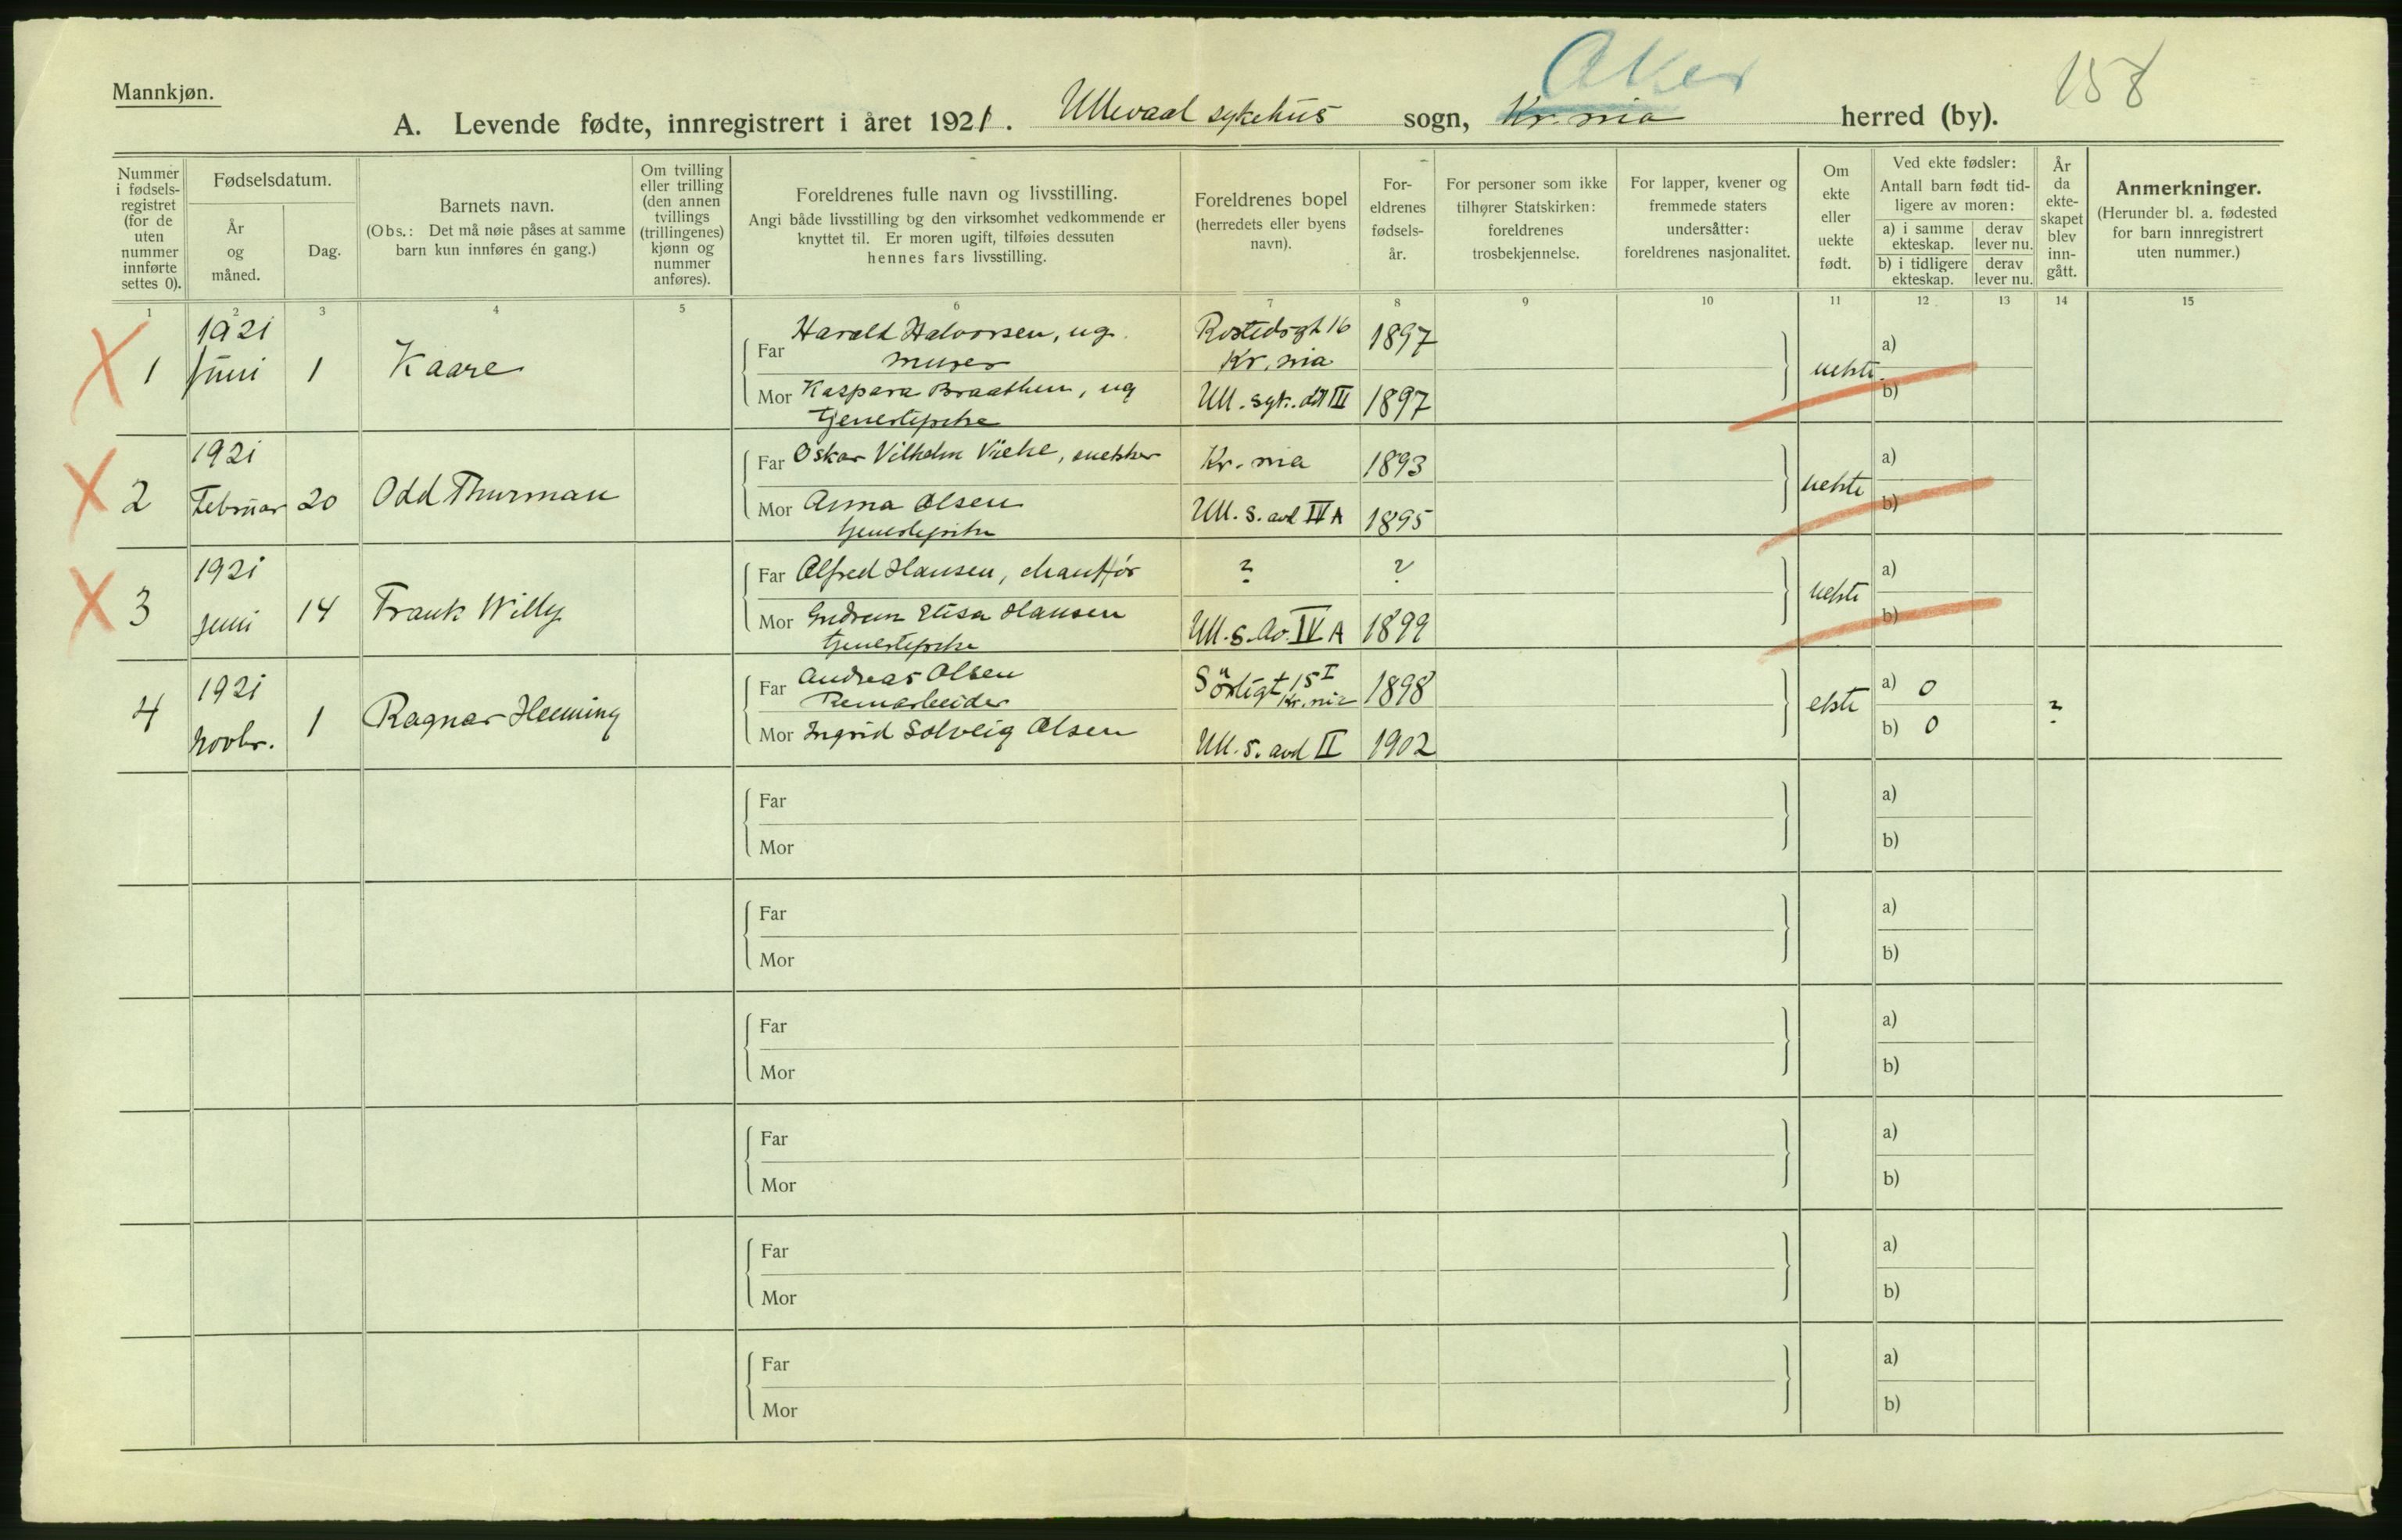 Mannkjøn.
Aker
158
A. Levende fødte, innregistrert i året 1921. Ullevaal sykehus sogn, Kr.nia herred (by).
Nummer i fødsels-registret (for de uten nummer innførte settes 0).
Fødselsdatum.
År og måned.
Dag.
Barnets navn.
(Obs.: Det må nøie påses at samme barn kun innføres én gang.)
Om tvilling eller trilling (den annen tvillings (trillingenes) kjønn og nummer anføres).
Foreldrenes fulle navn og livsstilling.
Angi både livsstilling og den virksomhet vedkommende er knyttet til. Er moren ugift, tilføies dessuten hennes fars livsstilling.
Foreldrenes bopel
(herredets eller byens navn).
For-eldrenes fødsels-år.
For personer som ikke tilhører Statskirken: foreldrenes trosbekjennelse.
For lapper, kvener og fremmede staters undersåtter: foreldrenes nasjonalitet.
Om ekte eller uekte født.
Ved ekte fødsler:
Antall barn født tid-ligere av moren:
a) i samme ekteskap.
derav lever nu.
b) i tidligere ekteskap.
derav lever nu.
År da ekte-skapet blev inn-gått.
Anmerkninger.
(Herunder bl. a. fødested for barn innregistrert uten nummer.)
1 2 3 4 5 6 7 8 9 10 11 12 13 14 15
X 1 1921 Juni 1 Kaare
Far Harald Halvorsen, ug. murer
Rostedsgt 16 Kr.nia 1897
Mor Kaspara Braathen, ug tjenestepike
Ull. syk. III 1897
uekte a) b)
X 2 1921 Februar 20 Odd Thurman
Far Oskar Vilhelm snekker
Kr.nia 1893
Mor Anna Olsen tjenestepike
Ull. s. avd IV A 1895
uekte a) b)
X 3 1921 Juni 14 Frank Willy
Far Alfred Hansen, chauffør
? ?
Mor Gudrun Elisa Hansen tjenestepike
Ull. s. Av. IV A 1899
uekte a) b)
4 1921 Novbr. 1 Ragnar Henning
Far Andreas Olsen
1898
Kr.nia
Mor Ingrid Solveig Olsen
Ull. s. avd II 1902
ekte a) 0 b) 0 ?
Far a)
Mor b)
Far a)
Mor b)
Far a)
Mor b)
Far a)
Mor b)
Far a)
Mor b)
Far a)
Mor b)